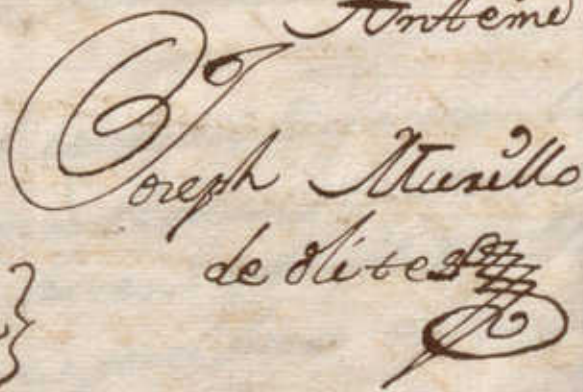 Anteme
Joseph Murillo
de olite